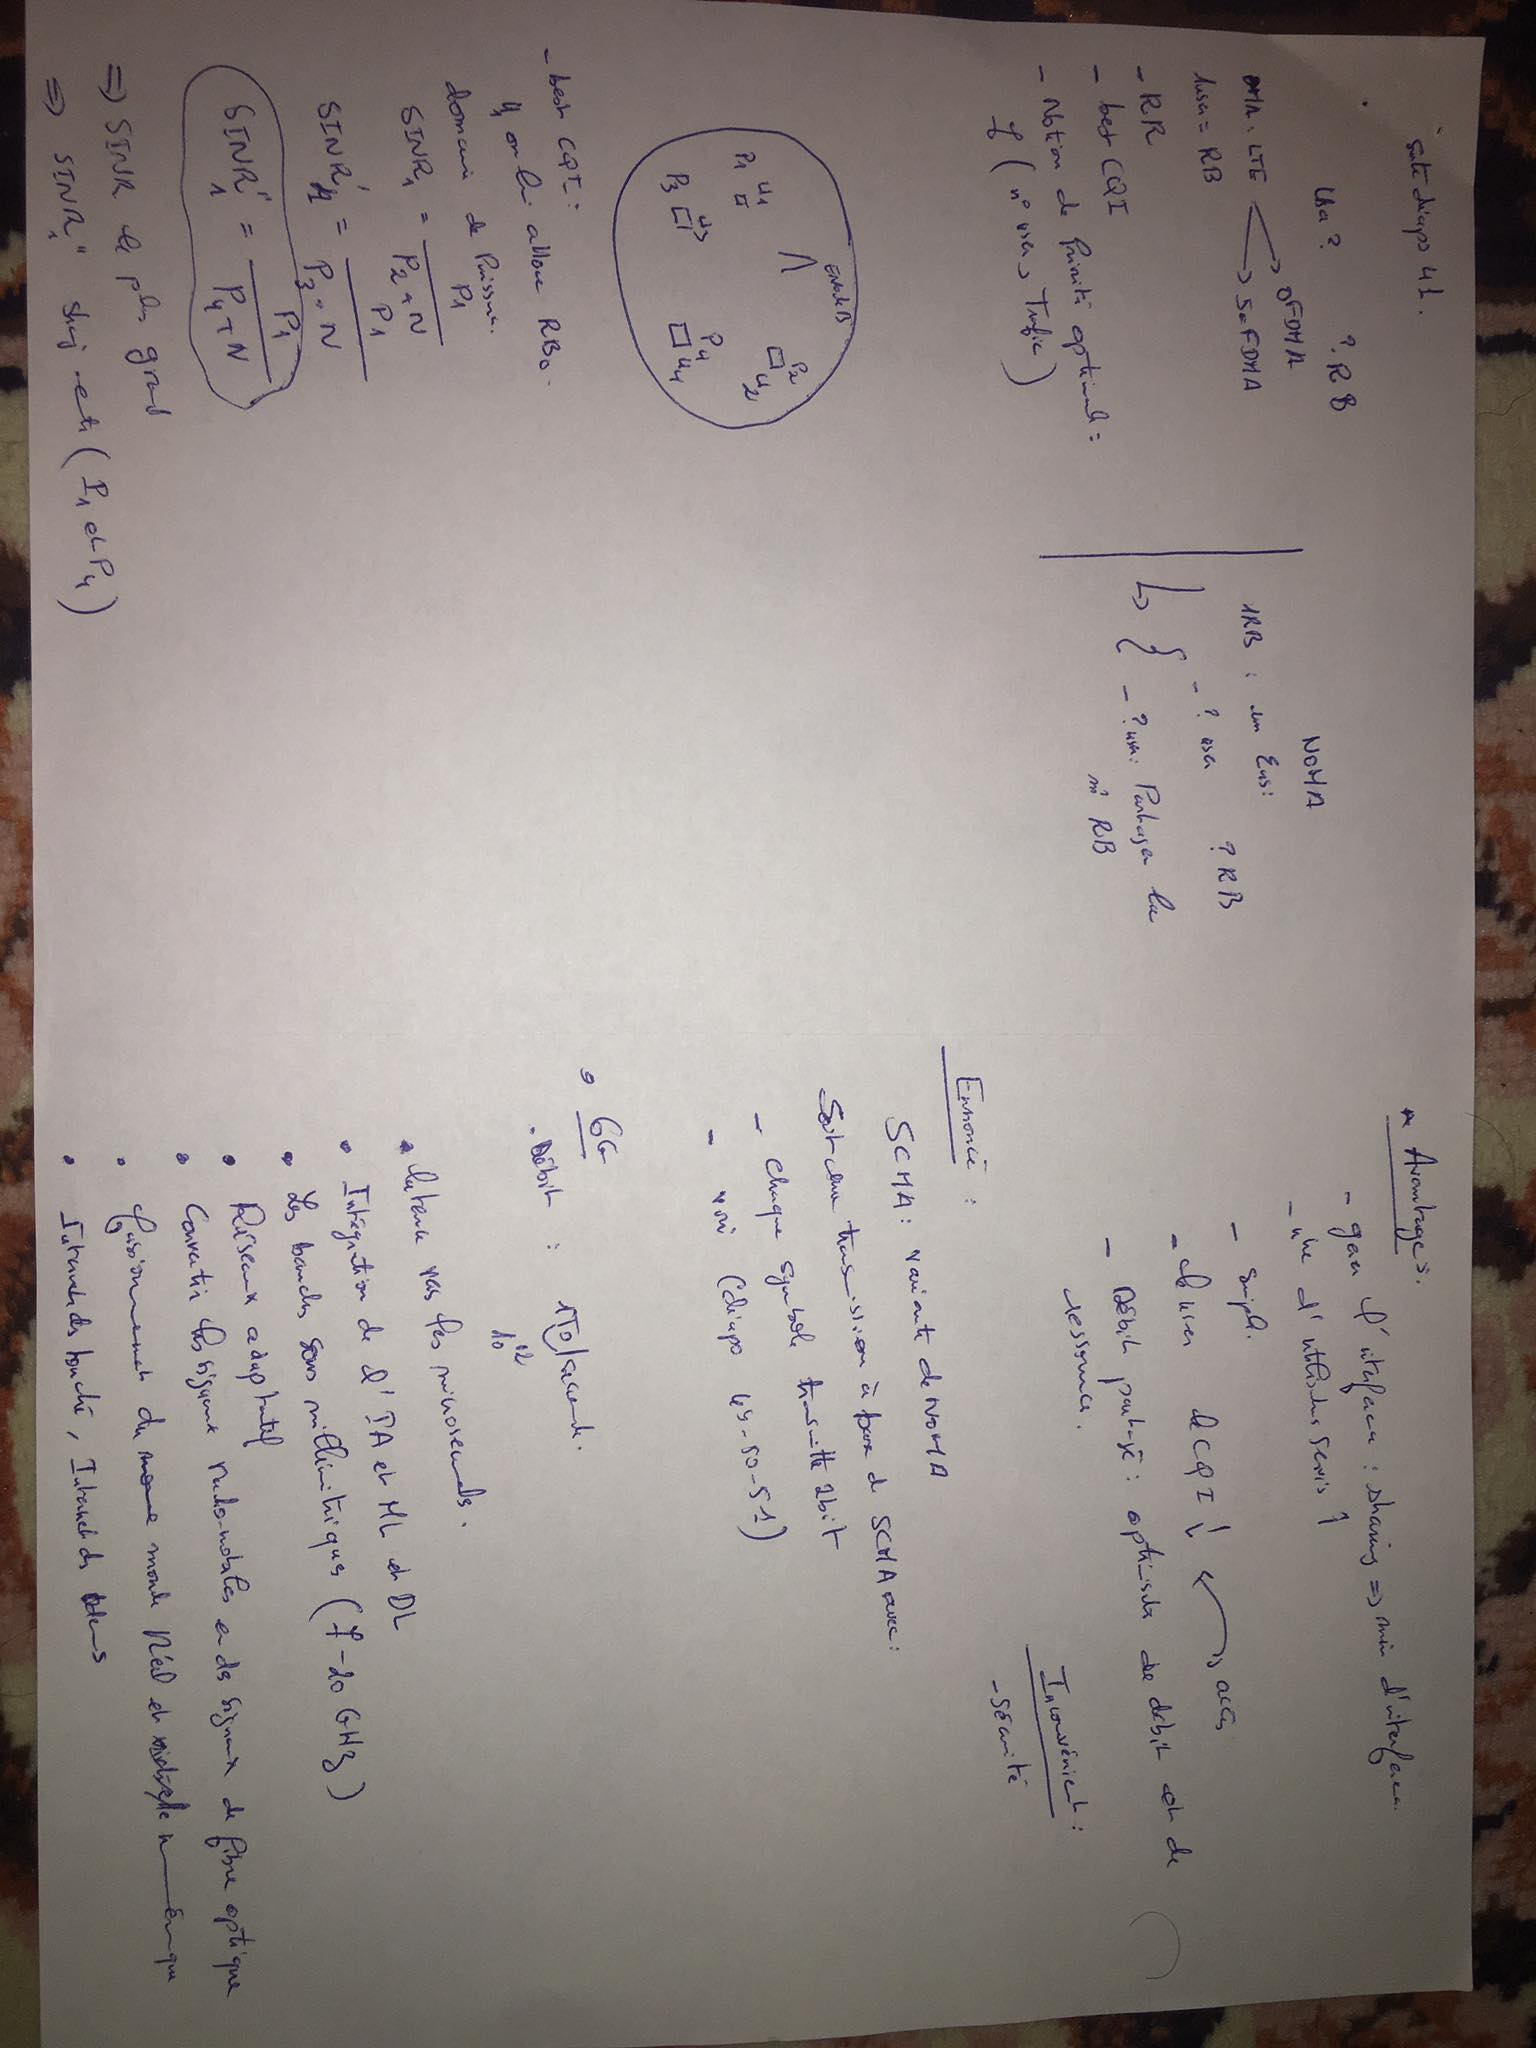 Suite diapo 41.
User ? ? RB
OMA : LTE
OFDMA
Sc FDMA
1user = RB
- RR
- best CQI
- Notion de Priorité optimale =
f ( n° user, Trafic )
NOMA
1RB : un Ens :
- ? user ? RB
- ? user : Partager la
m̂ RB
ENodeB
P1 U1
P2
U2
P3 U3
P4
U4
- best CQI :
U1 on lui alloue RB0.
domaine de Puissance.
SINR1 = P1 / P2 + N
SINR'1 = P1 / P3 + N
SINR''1 = P1 / P4 + N
=> SINR le plus grand
=> SINR''1 entre ( P1 et P4 )
* Avantages.
- gerer l'interference : sharing => min d'interference
- nbre d'utilisateurs servis ↑
- Simpl.
- le user de CQI ↓ accès
- Débit partagé : optimisation de débit et de
ressource.
Inconvénient :
- Sécurité
Ennoncé :
SCMA : variante de NOMA
Soit une transmission à base de SCMA avec :
- Chaque symbole transmette 2bit
- voir (diapo 49-50-51)
• 6G
• Débit : 1To/seconde.
10^12
• latence vers les microsecondes.
• Intégration de l'IA et ML et DL
• Les bandes sous millimitriques ( 7-20 GHz )
• Réseaux adaptatif
• Convertir les signaux radio-mobiles en des signaux de fibre optique
• fusionnement du monde Réél et numérique
• Internet des touché, Internet des